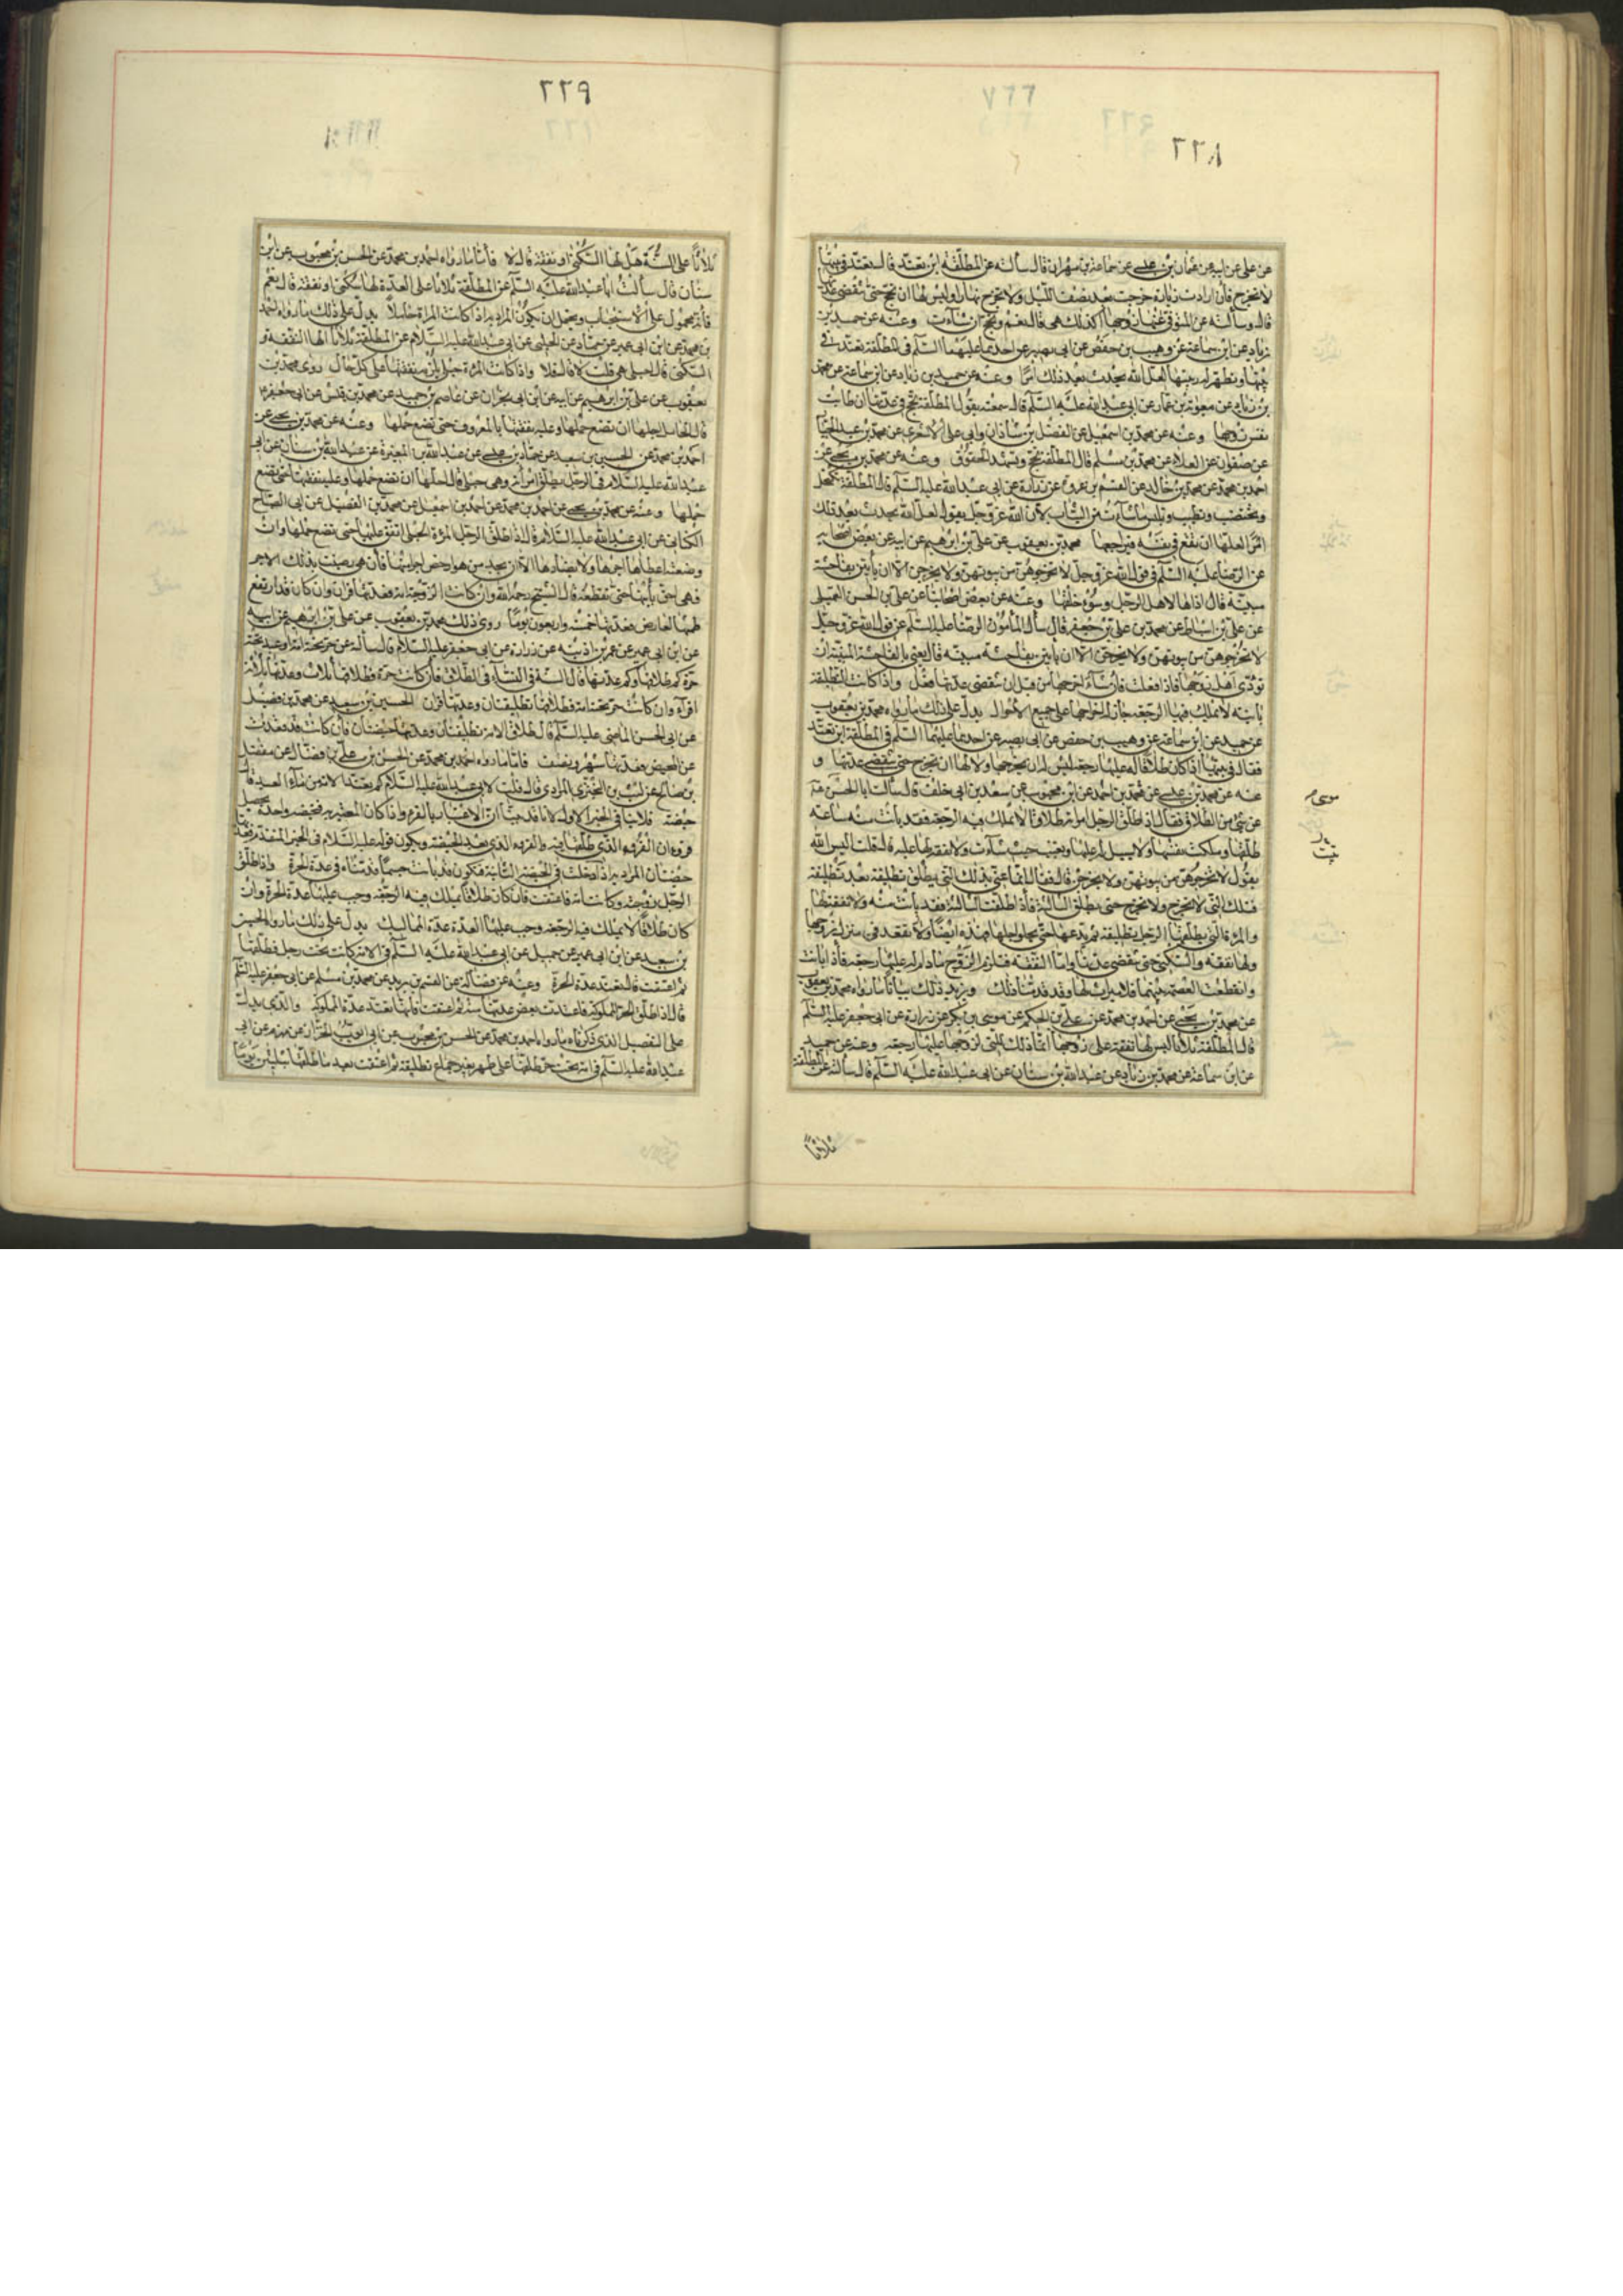 ٢٢٨
عن علي عن ابيه عن عثمان بن عيسى عن سماعة بن مهران قال سألته عن المطلقة اين تعتد قال تعتد في بيتها
لا تخرج فان ارادت زيارة خرجت بعد نصف الليل ولا تخرج نهارا وليس لها ان تحج حتى تنقضي عدتها
قال وسألته عن المتوفى عنها زوجها أكذلك هي قال نعم وتحج ان شاءت وعنه عن حميد بن
زياد عن ابن سماعة عن وهيب بن حفص عن ابي بصير عن احدهما عليهما السلم في المطلقة تعتد في
بيتها وتظهر له زينتها لعل الله يحدث بعد ذلك امرا وعنه عن حميد بن زياد عن ابن سماعة عن محمد
بن زياد عن معوية بن عمار عن ابي عبد الله عليه السلم قال سمعته يقول المطلقة تحج في عدتها ان طابت
نفس زوجها وعنه عن محمد بن اسمعيل عن الفضل بن شاذان وابي علي الاشعري عن محمد بن عبد الجبار
عن صفوان عن العلاء عن محمد بن مسلم قال المطلقة تحج وتشهد الحقوق وعنه عن محمد بن يحيى عن
احمد بن محمد عن محمد بن خالد عن القسم بن عروة عن زرارة عن ابي عبد الله عليه السلم قال المطلقة تكتحل
وتختضب وتطيب وتلبس ما شاءت من الثياب لان الله عز وجل يقول لعل الله يحدث بعد ذلك
امرا لعلها ان تقع في نفسه فيراجعها محمد بن يعقوب عن علي بن ابرهيم عن ابيه عن بعض اصحابه
عن الرضا عليه السلم في قول الله عز وجل لا تخرجوهن من بيوتهن ولا يخرجن الا ان يأتين بفاحشة
مبينة قال اذاها لاهل الرجل وسوء خلقها وعنه عن بعض اصحابنا عن علي بن الحسن التيملي
عن علي بن اسباط عن محمد بن علي بن جعفر قال سأل المأمون الرضا عليه السلم عن قول الله عز وجل
لا تخرجوهن من بيوتهن ولا يخرجن الا ان يأتين بفاحشة مبينة قال يعني بالفاحشة المبينة ان
تؤذي اهل زوجها فاذا فعلت فان شاء اخرجها من قبل ان تنقضي عدتها فعل واذا كانت التطليقة
باينة لا يملك فيها الرجعة جاز له اخراجها على جميع الاحوال يدل على ذلك ما رواه محمد بن يعقوب
عن حميد عن ابن سماعة عن وهيب بن حفص عن ابي بصير عن احدهما عليهما السلم في المطلقة اين تعتد
فقال في بيتها اذا كان طلاقا له عليها رجعة ليس له ان يخرجها ولا لها ان تخرج حتى تنقضي عدتها و
عنه عن محمد بن يحيى عن محمد بن احمد عن ابن محبوب عن سعد بن ابي خلف قال سألت ابا الحسن
موسى م
عن شيء من الطلاق فقال اذا طلق الرجل امراته طلاقا لا يملك فيه الرجعة فقد بانت منه ساعة
طلقها وملكت نفسها ولا سبيل له عليها وتعتد حيث شاءت ولا نفقة لها عليه قال قلت اليس الله
يقول لا تخرجوهن من بيوتهن ولا يخرجن قال فقال انما عني بذلك التي يطلق تطليقة بعد تطليقة
فتلك التي لا تخرج ولا تخرج حتى يطلق الثالثة فاذا طلقت الثالثة فقد بانت منه ولا نفقة لها
والمرءة التي يطلقها الرجل تطليقة ثم يدعها حتى يخلو اجلها فهذه ايضا ولا تقعد في منزل زوجها
ولها نفقة والسكنى حتى تنقضي عدتها واما النفقة فتلزم الزوج ما دام له عليها رجعة فاذا بانت
وانقطعت العصمة بينهما فلا ميراث لها وقد قدمنا ذلك ويزيد ذلك بيانا ما رواه محمد بن يعقوب
عن محمد بن يحيى عن احمد بن محمد عن علي بن الحكم عن موسى بن بكر عن زرارة عن ابي جعفر عليه السلم
قال المطلقة ثلاثا ليس لها نفقة على زوجها انما ذلك للتي لزوجها عليها رجعة وعنه عن حميد
عن ابن سماعة عن محمد بن زياد عن عبد الله بن سنان عن ابي عبد الله عليه السلم قال سألته عن المطلقة
ثلاثا
٢٢٩
ثلاثا على السنة هل لها السكنى او نفقة قال لا فاما ما رواه احمد بن محمد عن الحسن بن محبوب عن ابن
سنان قال سألت ابا عبد الله عليه السلم عن المطلقة ثلاثا على العدة لها سكنى او نفقة قال نعم
فانه محمول على الاستحباب ويحتمل ان يكون المراد به اذا كانت المراة حاملا يدل على ذلك ما رواه احمد
بن محمد عن ابن ابي عمير عن حماد عن الحلبي عن ابي عبد الله عليه السلام عن المطلقة ثلاثا الها النفقة و
السكنى قال احبلى هي قلت لا قال فلا واذا كانت المرءة حبلى فان نفقتها على كل حال روى محمد بن
يعقوب عن علي بن ابرهيم عن ابيه عن ابن ابي نجران عن عاصم بن حميد عن محمد بن قيس عن ابي جعفر م
قال الحامل اجلها ان تضع حملها وعليه نفقتها بالمعروف حتى تضع حملها وعنه عن محمد بن يحيى عن
احمد بن محمد عن الحسين بن سعيد عن حماد بن عيسى عن عبد الله بن المغيرة عن عبد الله بن سنان عن ابي
عبد الله عليه السلام في الرجل يطلق امرأته وهي حبلى قال اجلها ان تضع حملها وعليه نفقتها حتى تضع
حملها وعنه عن محمد بن يحيى عن احمد بن محمد عن محمد بن اسمعيل عن محمد بن الفضيل عن ابي الصباح
الكناني عن ابي عبد الله عليه السلام قال اذا طلق الرجل المرءة الحبلى انفق عليها حتى تضع حملها وان
وضعته اعطاها اجرها ولا يضارها الا ان يجد من هو ارخص اجرا منها فان هي رضيت بذلك الاجر
فهي احق بابنها حتى تفطمه قال الشيخ رحمه الله وان كانت الزوجة امة فعدتها قرآن وان كان قد ارتفع
طمثها لعارض فعدتها خمسة واربعون يوما روى ذلك محمد بن يعقوب عن علي بن ابرهيم عن ابيه
عن ابن ابي عمير عن عمر بن اذينة عن زرارة عن ابي جعفر عليه السلام قال سألته عن حر تحته امة او عبد تحته
حرة كم طلاقها وكم عدتها قال السنة في النساء في الطلاق فان كانت حرة فطلاقها ثلاث وعدتها ثلاثة
اقراء وان كان حر تحته امة فطلاقها تطليقتان وعدتها قرآن الحسين بن سعيد عن محمد بن فضيل
عن ابي الحسن الماضي عليه السلم قال طلاق الامة تطليقتان وعدتها حيضتان فان كانت قد قعدت
عن المحيض فعدتها شهر ونصف فاما ما رواه احمد بن محمد عن الحسن بن علي بن فضال عن مفضل
بن صالح عن ليث بن البختري المرادي قال قلت لابي عبد الله عليه السلام كم تعتد الامة من ماء العبد قال
حيضة فلا ينافي الخبر الاول لانا قد بينا ان الاعتبار بالقرء واذا كان المعتبر به فبحيضة واحدة يحصل
قرءان القرء الذي طلقها فيه والقرء الذي بعد الحيضة ويكون قوله عليه السلام في الخبر المتقدم وعدتها
حيضتان المراد به اذا دخلت في الحيضة الثانية فتكون قد بانت حسبما قدمناه في عدة الحرة واذا طلق
الرجل زوجته وكانت امة فاعتقت فان كان طلاقا يملك فيه الرجعة وجب عليها عدة الحرة وان
كان طلاقا لا يملك فيه الرجعة وجب عليها العدة عدة المماليك يدل على ذلك ما رواه الحسين
بن سعيد عن ابن ابي عمير عن جميل عن ابي عبد الله عليه السلم في الامة كانت تحت رجل فطلقها
ثم اعتقت قال تعتد عدة الحرة وعنه عن فضالة عن القسم بن بريد عن محمد بن مسلم عن ابي جعفر عليه السلم
قال اذا طلق الحر المملوكة فاعتدت بعض عدتها منه ثم اعتقت فانها تعتد عدة المملوكة والذي يدل
على التفصيل الذي ذكرناه ما رواه احمد بن محمد عن الحسن بن محبوب عن ابي ايوب الخزاز عن مهزم عن ابي
عبد الله عليه السلم في امة تحت حر طلقها على طهر بغير جماع تطليقة ثم اعتقت بعد ما طلقها بثلثين يوما